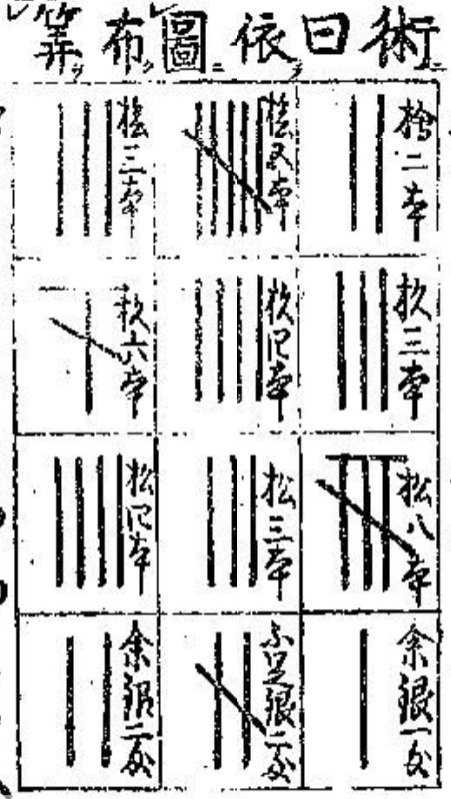 術曰依圖布筭
檜二本
杉三本
松八本
余銀一匁
桧五本
杉四本
松三本
不足銀二匁
桧三本
杉六本
松四本
余銀二匁